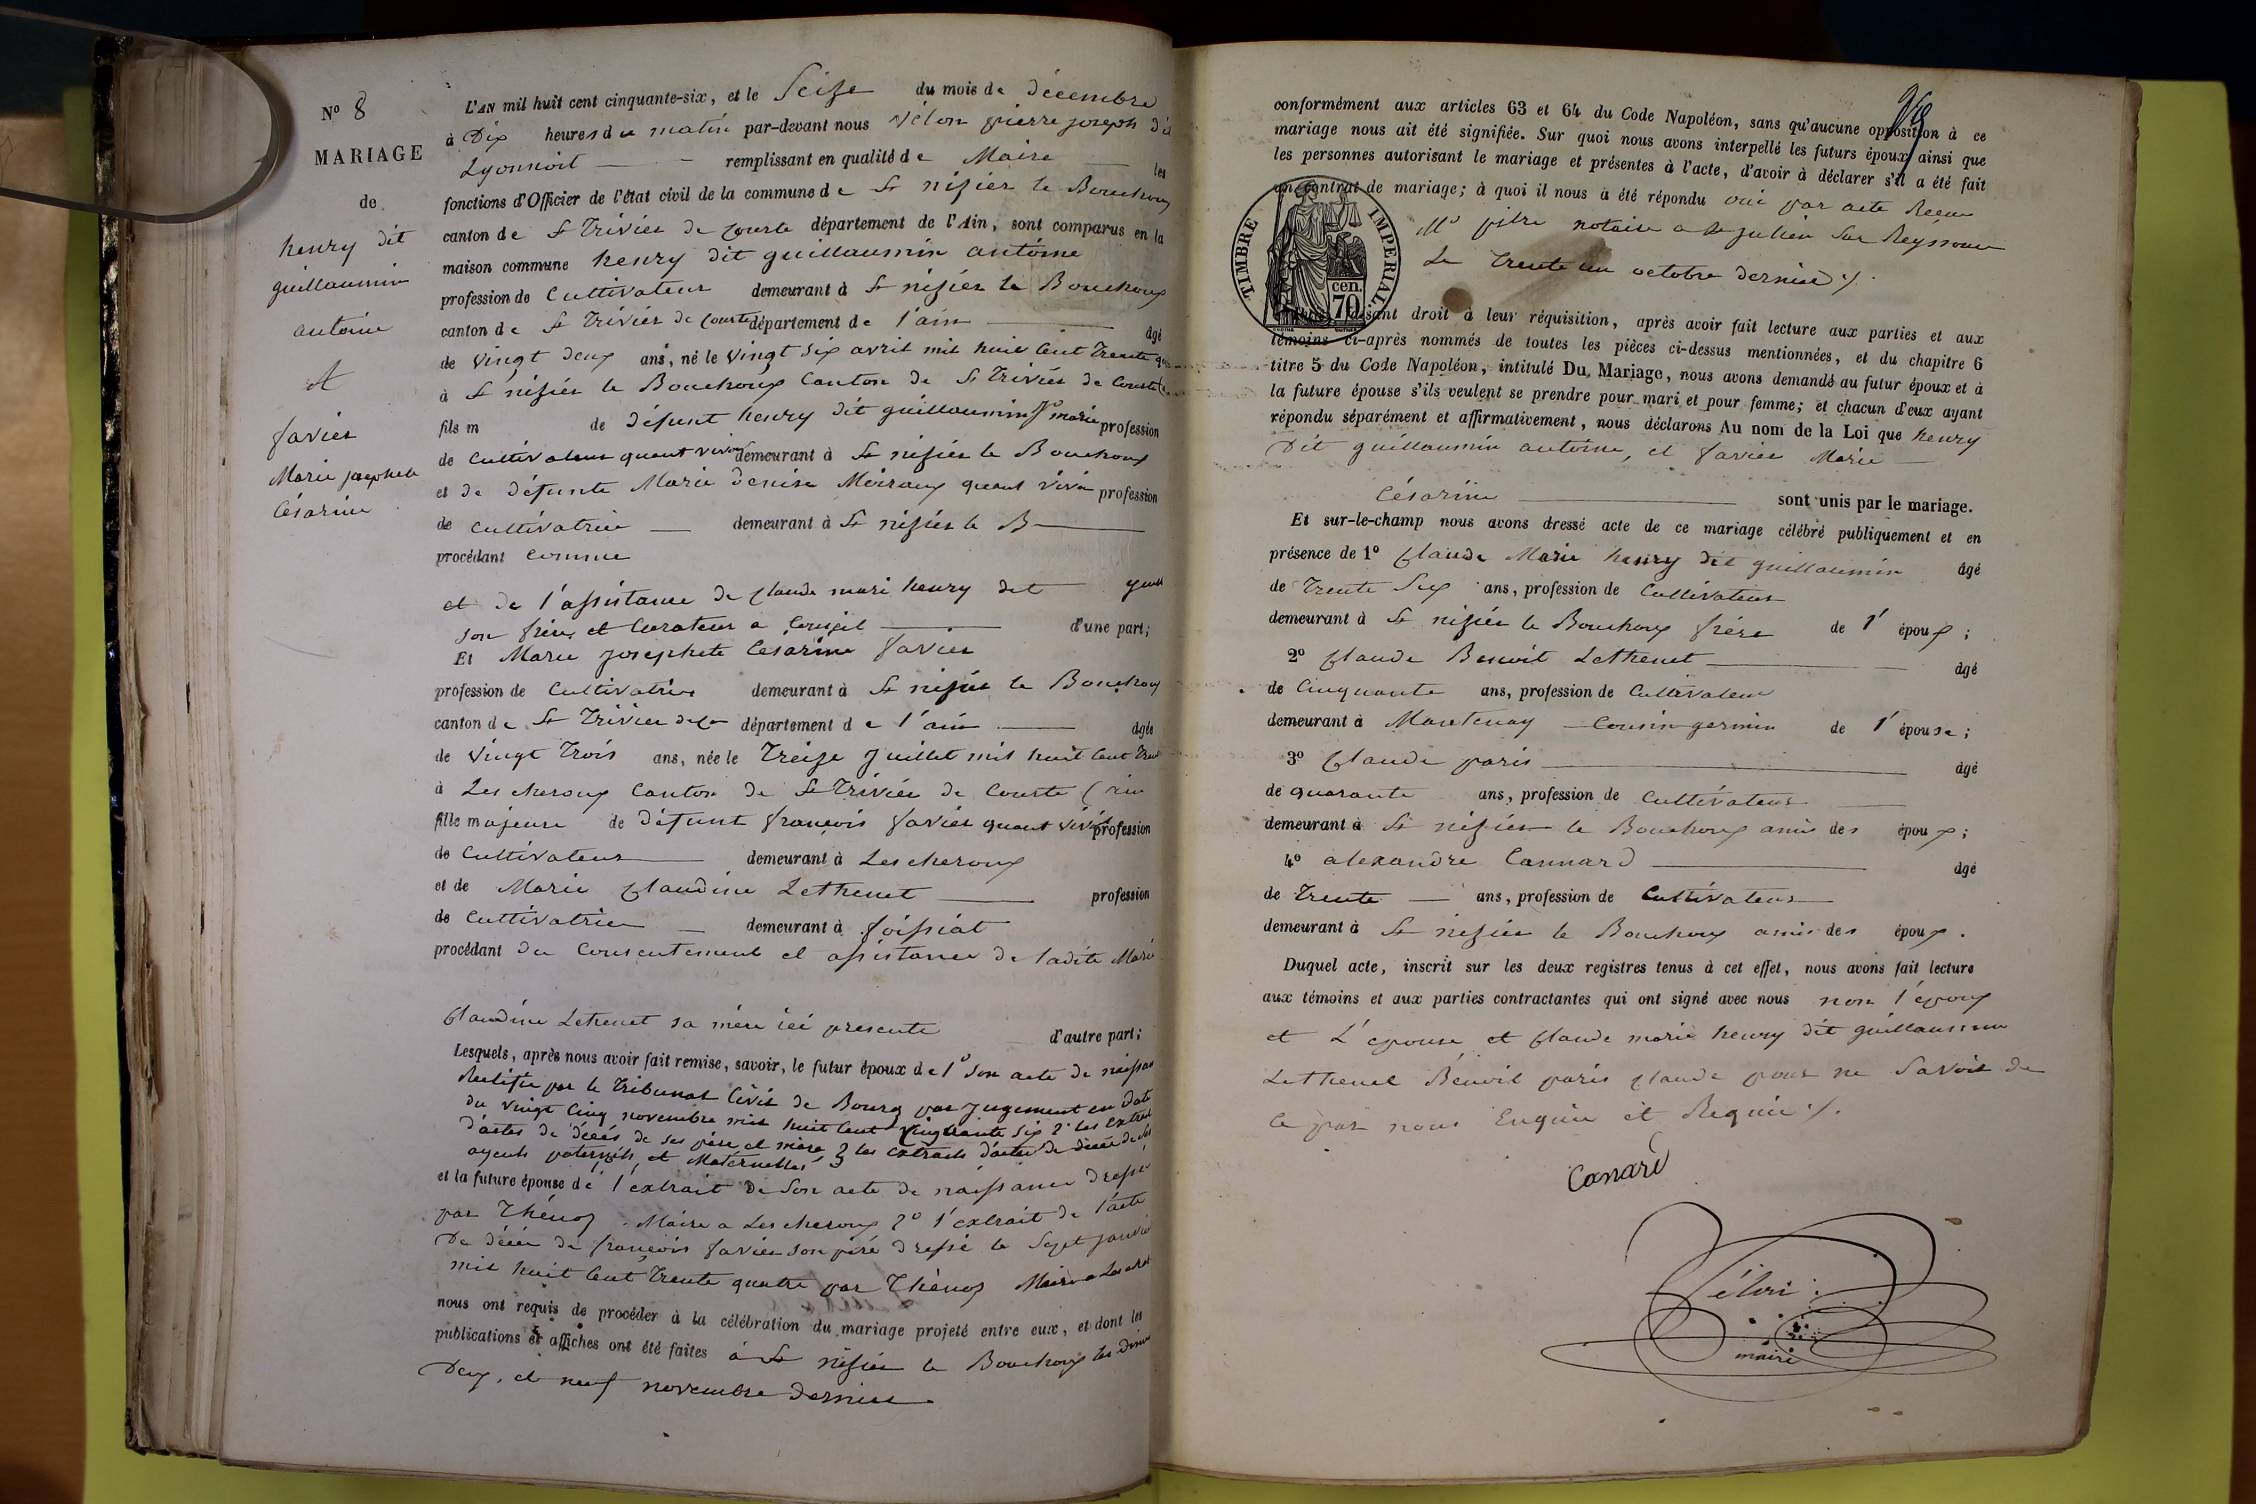 N° 8
MARIAGE
de
henry dit
guillaumin
antoine
et
favier
Marie josephete
Césarine
L'AN mil huit cent cinquante-six, et le Seize du mois de décembre
à Dix heures du matin par-devant nous Vélon pierre joseph dit
Lyonnoit remplissant en qualité de Maire les
fonctions d'Officier de l'état civil de la commune de St nisier le Bouchoux
canton de St Trivier de Courte département de l'Ain, sont comparus en la
maison commune henry dit guillaumin antoine
profession de Cultivateur demeurant à St nisier le Bouchoux
canton de St Trivier de Courte département de l'ain âgé
de vingt deux ans, né le vingt six avril mil huit Cent Trente
à St nisier le Bouchoux Canton de St Trivier de Courte
fils m de défunt henry dit guillaumin marie profession
de Cultivateur quant vivai demeurant à St nisier le Bouchoux
et de défunte Marie denise Moiraux quant vivai profession
de cultivatrice demeurant à St nisier le B
procédant comme
et de l'assistance de Claude mari henry dit
son frère et Curateur a Conseil d'une part;
Et Marie josephete Césarine favier
profession de Cultivatrice demeurant à St nisier le Bouchoux
canton de St Trivier de Co département de l'ain âgée
de vingt Trois ans, née le Treize Juillet mil huit Cent Trent
à Lescheroux Canton de St Trivier de Courte (ain
fille majeure de défunt françois favier quant vivai profession
de Cultivateur demeurant à Lescheroux
et de Marie Claudine Lethenet profession
de Cultivatrice demeurant à foissiat
procédant du Consentement et assistance de ladite Marie
Claudine Lethenet sa mère ici presente d'autre part;
Lesquels, après nous avoir fait remise, savoir, le futur époux de 1° son acte de naissan
Rectifié par le Tribunal Civil de Bourg par Jugement en date
du vingt Cinq novembre mil huit Cent Cinquante six 2° les extrait
d'actes de décés de ses père et mère 3 les extraits d'actes de décés de ses
ayeuls paternels et Maternelles
et la future épouse de l'extrait de Son acte de naissance dressé
par Thénoz Maire a Lescheroux 2° l'extrait de l'acte
De décés de françois favier son père dressé le Sept janvier
mil huit Cent Trente quatre par Thénoz Maire a Lescher
nous ont requis de procéder à la célébration du mariage projeté entre eux, et dont les
publications et affiches ont été faites à St nisier le Bouchoux les dim
Deux, et neuf novembre dernier
conformément aux articles 63 et 64 du Code Napoléon, sans qu'aucune opposition à ce
mariage nous ait été signifiée. Sur quoi nous avons interpellé les futurs époux, ainsi que
les personnes autorisant le mariage et présentes à l'acte, d'avoir à déclarer s'il a été fait
un contrat de mariage; à quoi il nous a été répondu oui par acte Recu
Me notaire a St julien Sur Reyssouze
Le Trente un octobre dernier
TIMBRE IMPERIAL.
70 cen.
faisant droit à leur réquisition, après avoir fait lecture aux parties et aux
témoins ci-après nommés de toutes les pièces ci-dessus mentionnées, et du chapitre 6
titre 5 du Code Napoléon, intitulé Du Mariage, nous avons demandé au futur époux et à
la future épouse s'ils veulent se prendre pour mari et pour femme; et chacun d'eux ayant
répondu séparément et affirmativement, nous déclarons Au nom de la Loi que henry
Dit guillaumin antoine, et favier Marie
Césarine sont unis par le mariage.
Et sur-le-champ nous avons dressé acte de ce mariage célébré publiquement et en
présence de 1° Claude Marie henry dit guillaumin âgé
de Trente Six ans, profession de Cultivateur
demeurant à St nisier le Bouchoux frère de l' époux;
2° Claude Benoit Lethenet âgé
de Cinquante ans, profession de Cultivateur
demeurant à Mantenay Cousin germin de l' épouse;
3° Claude paris âgé
de quarante ans, profession de Cultivateur
demeurant à St nisier le Bouchoux amis des époux;
4° alexandre Cannard âgé
de Trente ans, profession de Cultivateur
demeurant à St nisier le Bouchoux amis des époux.
Duquel acte, inscrit sur les deux registres tenus à cet effet, nous avons fait lecture
aux témoins et aux parties contractantes qui ont signé avec nous non l'époux
et L'epouse et Claude marie henry dit guillaumin
Lethenet Benoit paris Claude pour ne Savoir de
ce par nous Enquis et Requis
Canard
Vélon
maire